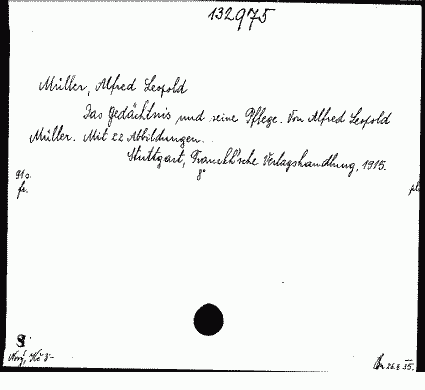 132975
Müller, Alfred Leopold
Das Gedächtnis und seine Pflege. Von Alfred Leopold
Müller. Mit 22 Abbildungen.
Stuttgart, Franckh'sche Verlagshandlung, 1915.
8°